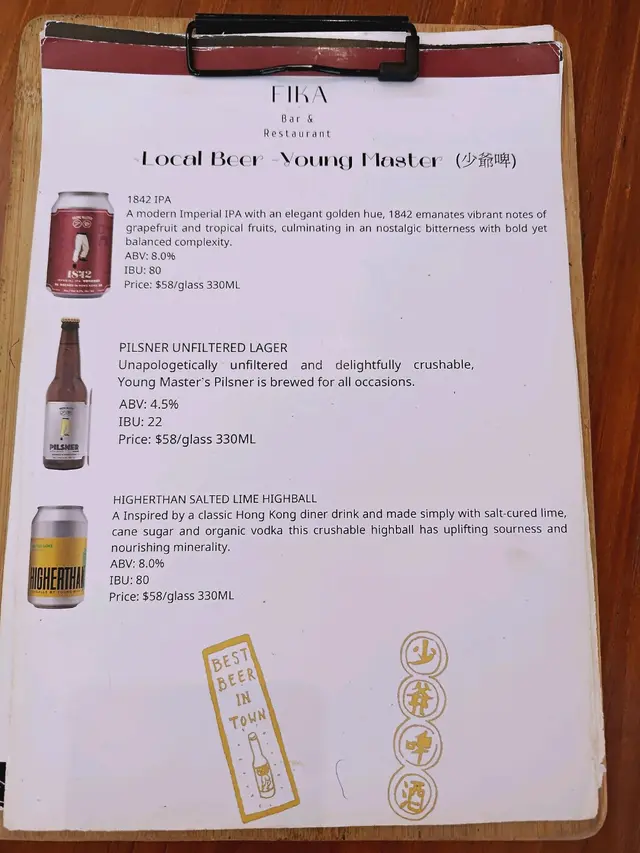 FIKA
Bar &
Restaurant
-Local Beer -Young Master (少爺啤)
1842 IPA
A modern Imperial IPA with an elegant golden hue, 1842 emanates vibrant notes of
grapefruit and tropical fruits, culminating in an nostalgic bitterness with bold yet
balanced complexity.
ABV: 8.0%
IBU: 80
Price: $58/glass 330ML
1842
PILSNER UNFILTERED LAGER
Unapologetically unfiltered and delightfully crushable,
Young Master's Pilsner is brewed for all occasions.
ABV: 4.5%
IBU: 22
Price: $58/glass 330ML
PILSNER
HIGHERTHAN SALTED LIME HIGHBALL
A Inspired by a classic Hong Kong diner drink and made simply with salt-cured lime,
cane sugar and organic vodka this crushable highball has uplifting sourness and
nourishing minerality.
ABV: 8.0%
IBU: 80
Price: $58/glass 330ML
HIGHERTHAN
BEST
BEER
IN
TOWN
少
爺
啤
酒